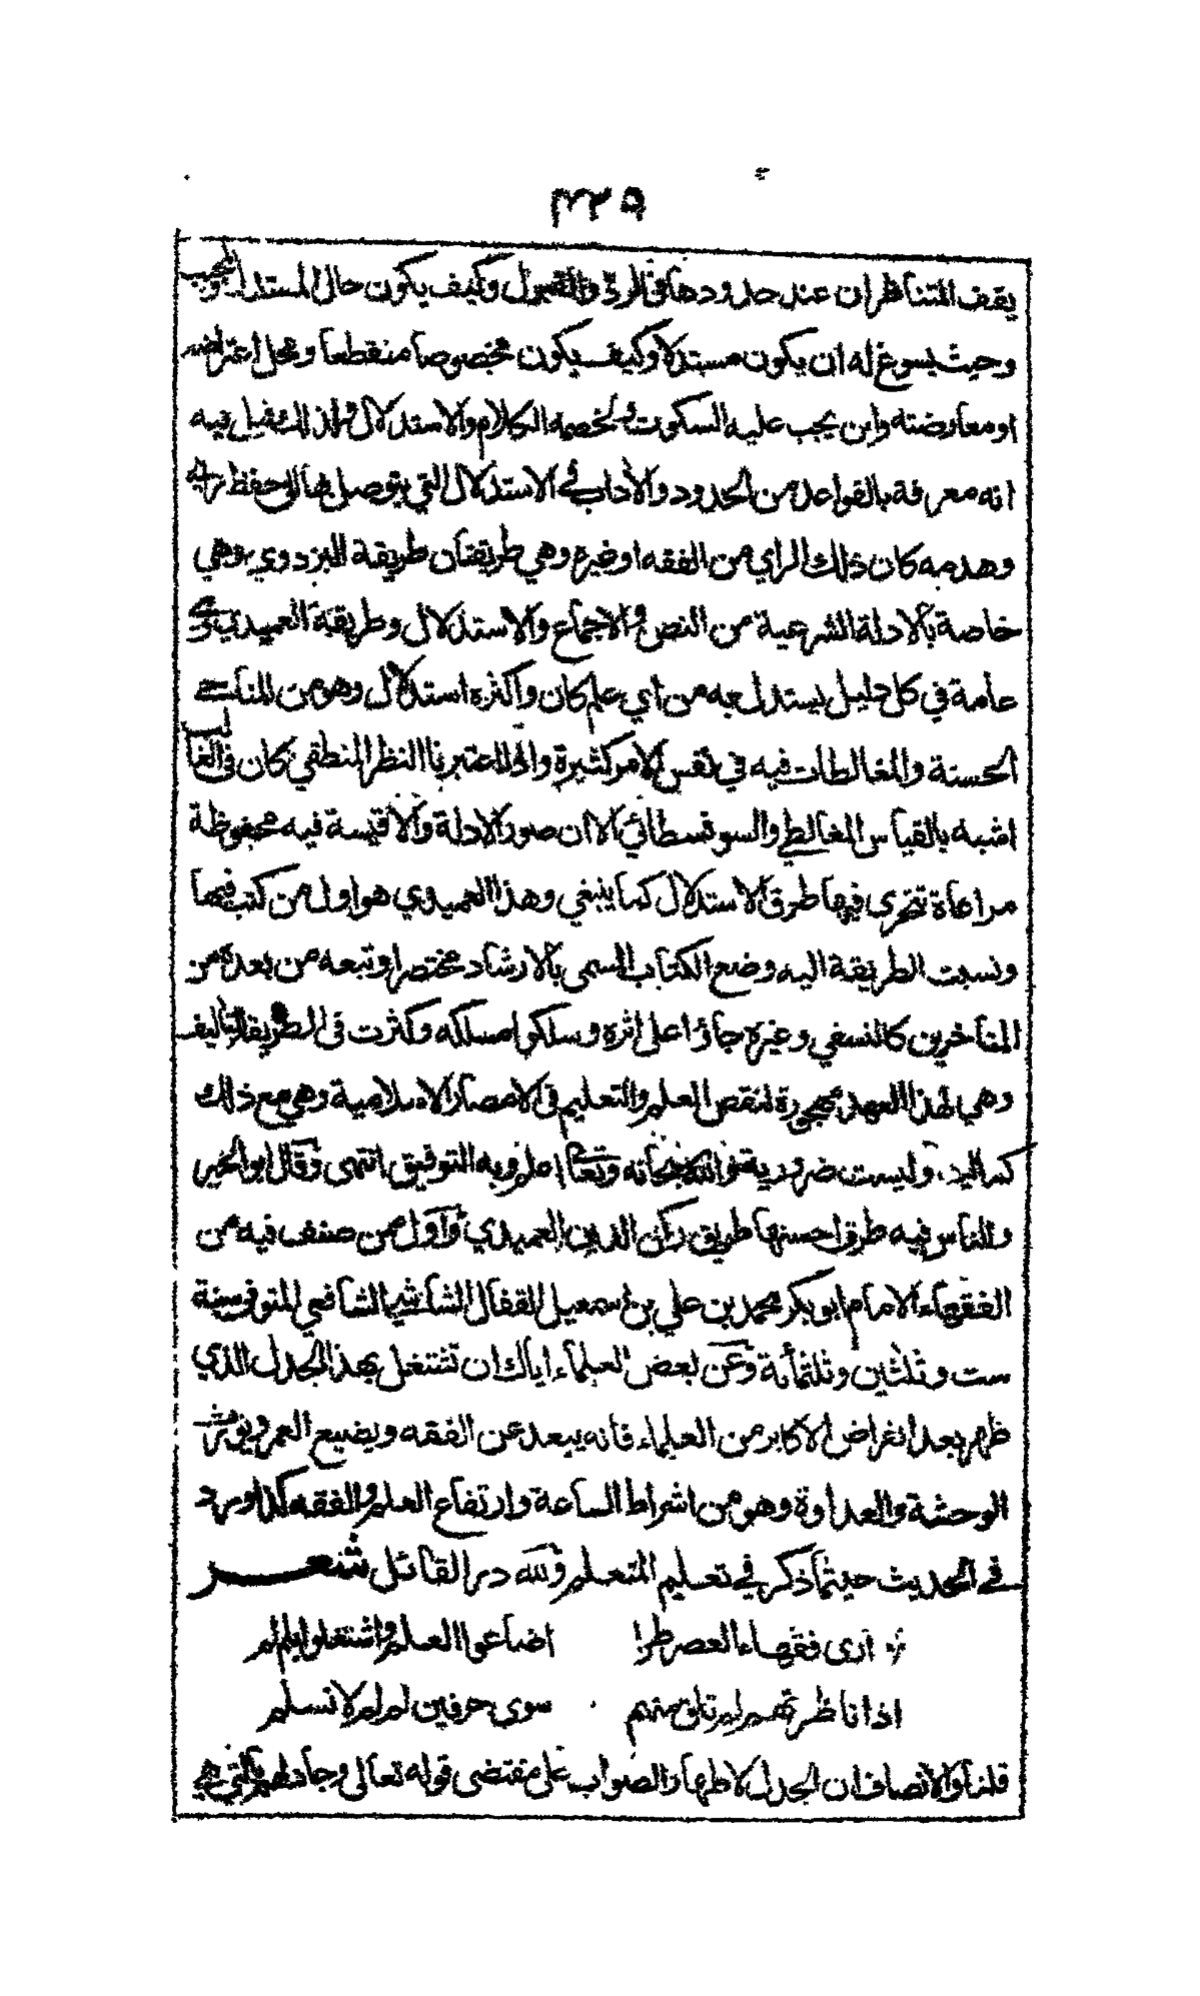 ٤٣٥
يقف المتناظران عند حدودها في الرد والقبول وكيف يكون حال المستدل والمجيب
وحيث يسوغ له ان يكون مستدلا وكيف يكون مخصوصا منقطعا ومحل اعتراضه
او معارضته واين يجب عليه السكوت ولخصمه الكلام والاستدلال ولذلك قيل فيه
انه معرفة بالقواعد من الحدود والآداب في الاستدلال التي يتوصل بها الى حفظ راي
وهدمه كان ذلك الراي من الفقه او غيره وهي طريقتان طريقة البزدوي وهي
خاصة بالادلة الشرعية من النص والاجماع والاستدلال وطريقة العميدي وهي
عامة في كل دليل يستدل به من اي علم كان واكثره استدلال وهو من المناحي
الحسنة والمغالطات فيه في نفس الامر كثيرة واذا اعتبرنا النظر المنطقي كان في الغالب
اشبه بالقياس المغالطي والسوفسطائي الا ان صور الادلة والاقيسة فيه محفوظة
مراعاة تتحرى فيها طرق الاستدلال كما ينبغي وهذا العميدي هو اول من كتب فيها
ونسبت الطريقة اليه وضع الكتاب المسمى بالارشاد مختصرا وتبعه من بعده من
المتأخرين كالنسفي وغيره جاؤا على اثره وسلكوا مسلكه وكثرت في الطريقة التآليف
وهي لهذا العهد مهجورة لنقص العلم والتعليم في الامصار الاسلامية وهي مع ذلك
كمالية وليست ضرورية والله سبحانه وتعالى اعلم وبه التوفيق انتهى وقال ابو الخير
وللناس فيه طرق احسنها طريق ركن الدين العميدي واول من صنف فيه من
الفقهاء الامام ابو بكر محمد بن علي بن اسمعيل القفال الشاشي الشافعي المتوفى سنة
ست وثلثين وثلثمائة وعن بعض العلماء اياك ان تشتغل بهذا الجدل الذي
ظهر بعد انقراض الاكابر من العلماء فانه يبعد عن الفقه ويضيع العمر ويورث
الوحشة والعداوة وهو من اشراط الساعة وارتفاع العلم والفقه كذا ورد
في الحديث حيثما ذكر في تعليم المتعلم ولله در القائل شعر
ارى فقهاء العصر طرا اضاعوا العلم واشتغلوا بلم لم
اذا ناظرتهم لم تلق منهم سوى حرفين لم لم لا نسلم
قلنا والانصاف ان الجدل لاظهار الصواب على مقتضى قوله تعالى وجادلهم بالتي هي